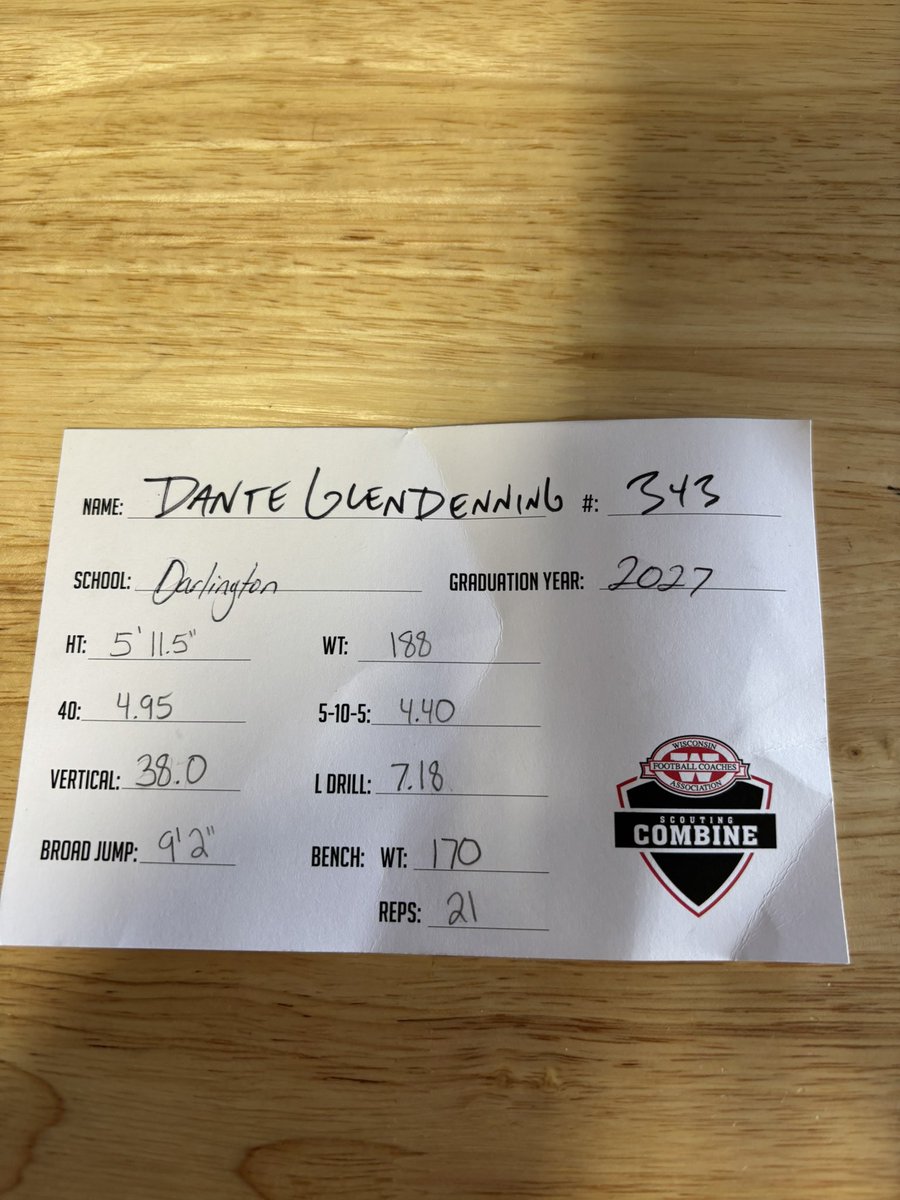 NAME: DANTE GLENDENNING #: 343
SCHOOL: Darlington GRADUATION YEAR: 2027
HT: 5'11.5" WT: 188
40: 4.95 5-10-5: 4.40
VERTICAL: 38.0 L DRILL: 7.18
BROAD JUMP: 9'2" BENCH: WT: 170
REPS: 21
WISCONSIN
W
FOOTBALL COACHES
ASSOCIATION
SCOUTING
COMBINE